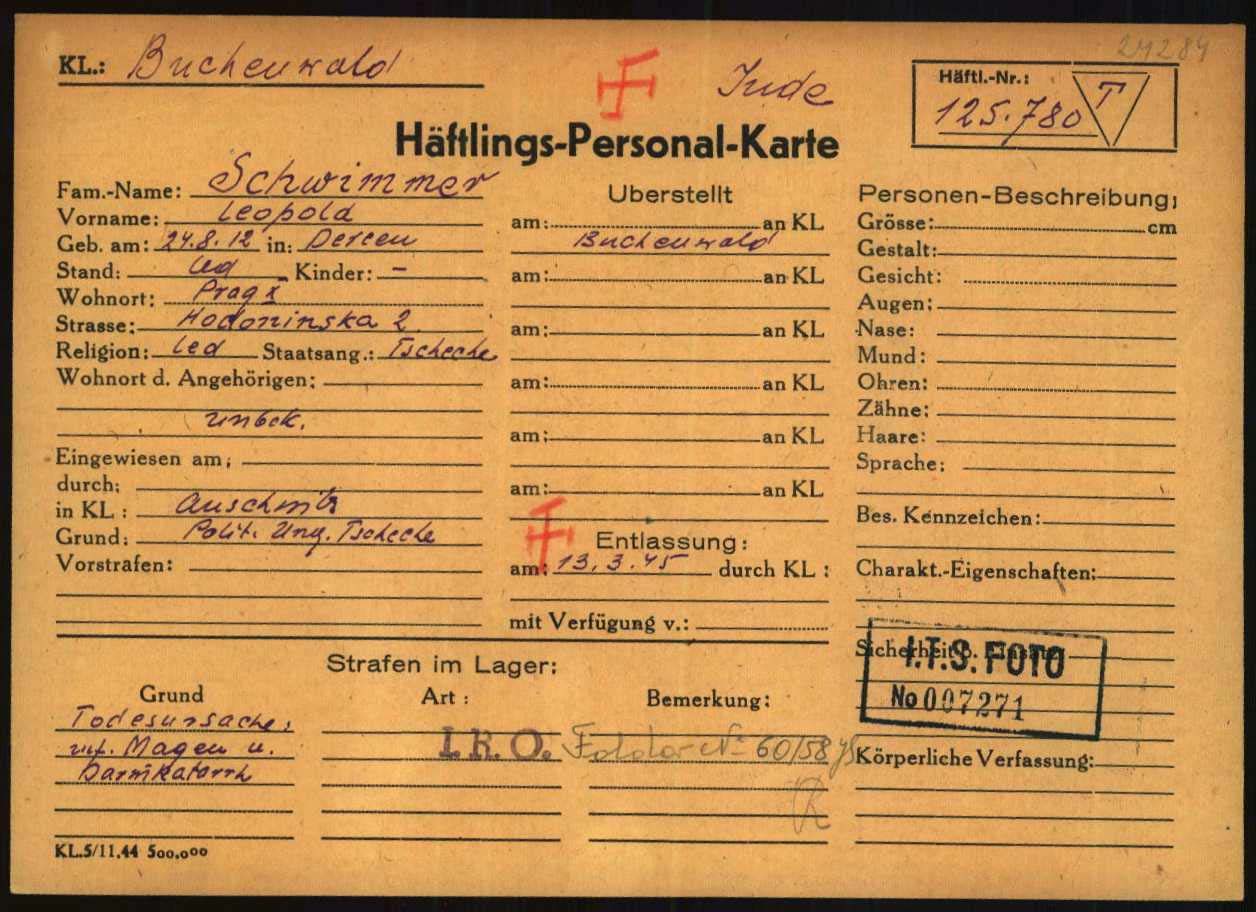 24284
KL.: Buchenwald
Jude
Häftl.-Nr.:
125.780
T
Häftlings-Personal-Karte
Fam.-Name: Schwimmer
Vorname: Leopold
Geb. am: 24.8.12 in: Dercen
Stand: led Kinder: -
Wohnort: Prag X
Strasse: Hodoninska 2.
Religion: led Staatsang.: Tscheche
Wohnort d. Angehörigen:
unbek.
Eingewiesen am:
durch:
in KL: Auschwitz
Grund: Polit. Ung. Tscheche
Vorstrafen:
Uberstellt
am: an KL
Buchenwald
am: an KL
am: an KL
am: an KL
am: an KL
am: an KL
Entlassung:
am: 13.3.45 durch KL:
mit Verfügung v.:
Personen-Beschreibung:
Grösse: cm
Gestalt:
Gesicht:
Augen:
Nase:
Mund:
Ohren:
Zähne:
Haare:
Sprache:
Bes. Kennzeichen:
Charakt.-Eigenschaften:
Sicherheit b.
I.T.S. FOTO
No 007271
Körperliche Verfassung:
Strafen im Lager:
Grund Art: Bemerkung:
Todesursache:
inf. Magen u.
Darmkatarrh
I.R.O. Folder No 60/58
R
KL.5/11.44 500.000